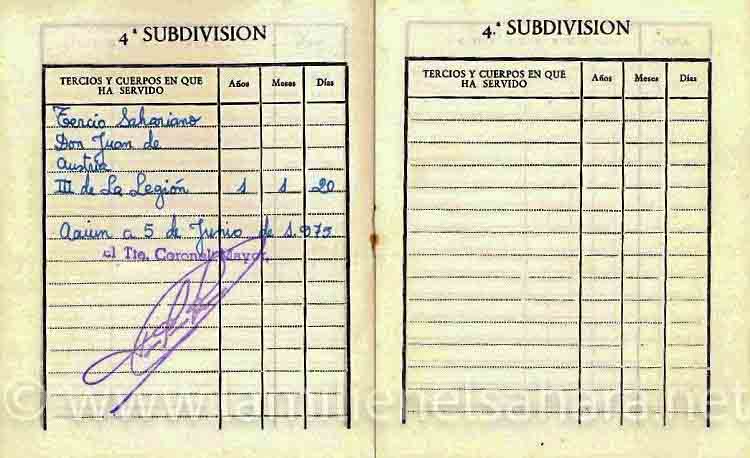 4.ª SUBDIVISION
TERCIOS Y CUERPOS EN QUE HA SERVIDO Años Meses Días
Tercio Sahariano
Don Juan de
Austria
III de La Legión 1 1 20
Aaiun a 5 de Junio de 1.975
el Tte. Coronel Mayor,
4.ª SUBDIVISION
TERCIOS Y CUERPOS EN QUE HA SERVIDO Años Meses Días
© www.lamilienelsahara.net